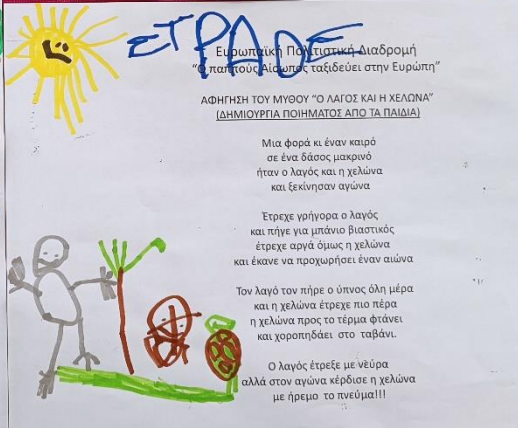 ΣΤΡΑΟΕ
Ευρωπαϊκή Πολιτιστική Διαδρομή
“Ο παππούς Αίσωπος ταξιδεύει στην Ευρώπη”
ΑΦΗΓΗΣΗ ΤΟΥ ΜΥΘΟΥ “Ο ΛΑΓΟΣ ΚΑΙ Η ΧΕΛΩΝΑ”
(ΔΗΜΙΟΥΡΓΙΑ ΠΟΙΗΜΑΤΟΣ ΑΠΟ ΤΑ ΠΑΙΔΙΑ)
Μια φορά κι έναν καιρό
σε ένα δάσος μακρινό
ήταν ο λαγός και η χελώνα
και ξεκίνησαν αγώνα
Έτρεχε γρήγορα ο λαγός
και πήγε για μπάνιο βιαστικός
έτρεχε αργά όμως η χελώνα
και έκανε να προχωρήσει έναν αιώνα
Τον λαγό τον πήρε ο ύπνος όλη μέρα
και η χελώνα έτρεχε πιο πέρα
η χελώνα προς το τέρμα φτάνει
και χοροπηδάει στο ταβάνι.
Ο λαγός έτρεξε με νεύρα
αλλά στον αγώνα κέρδισε η χελώνα
με ήρεμο το πνεύμα!!!